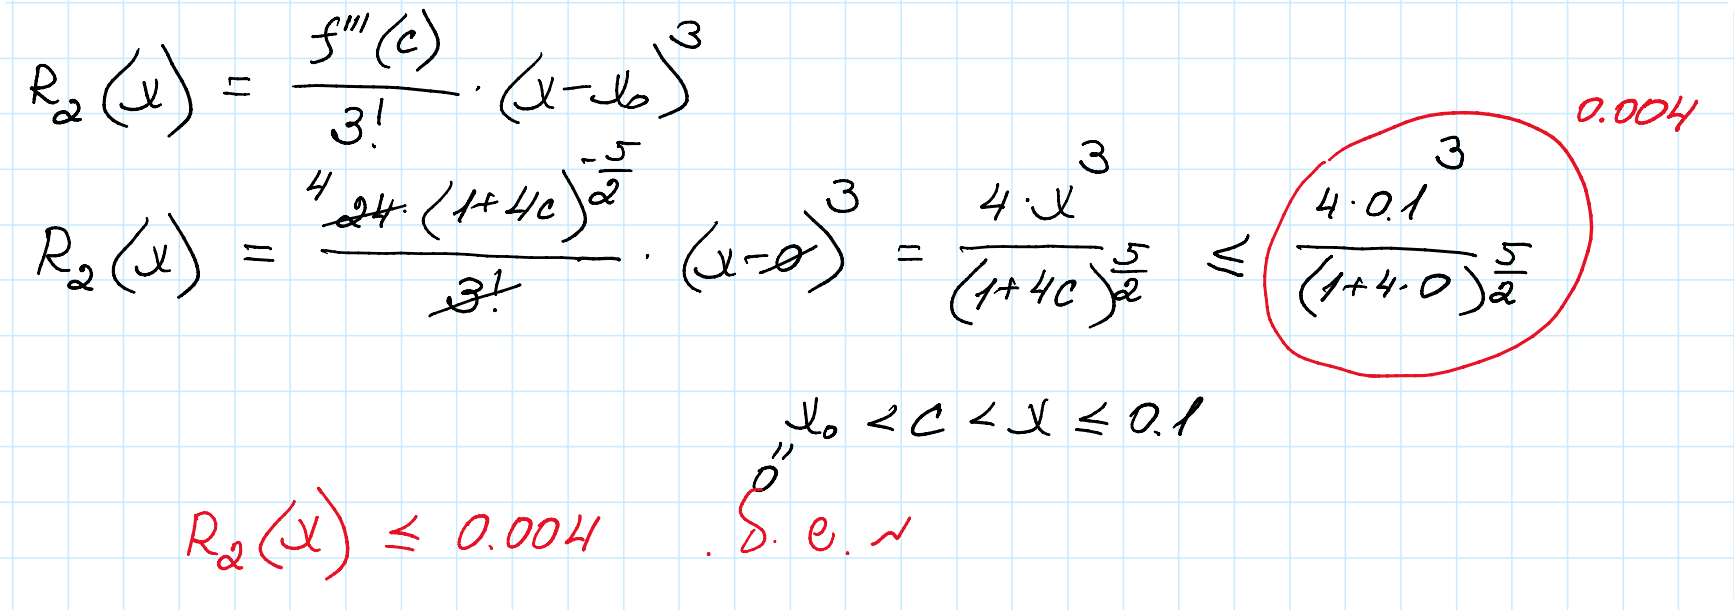 R₂(x) = f'''(c)/3! · (x-x₀)³
0.004
R₂(x) = 4 24·(1+4c)^(-5/2)/3! · (x-0)³ = 4·x³/(1+4c)^(5/2) ≤ 4·0.1³/(1+4·0)^(5/2)
x₀ < c < x ≤ 0.1
0
R₂(x) ≤ 0.004